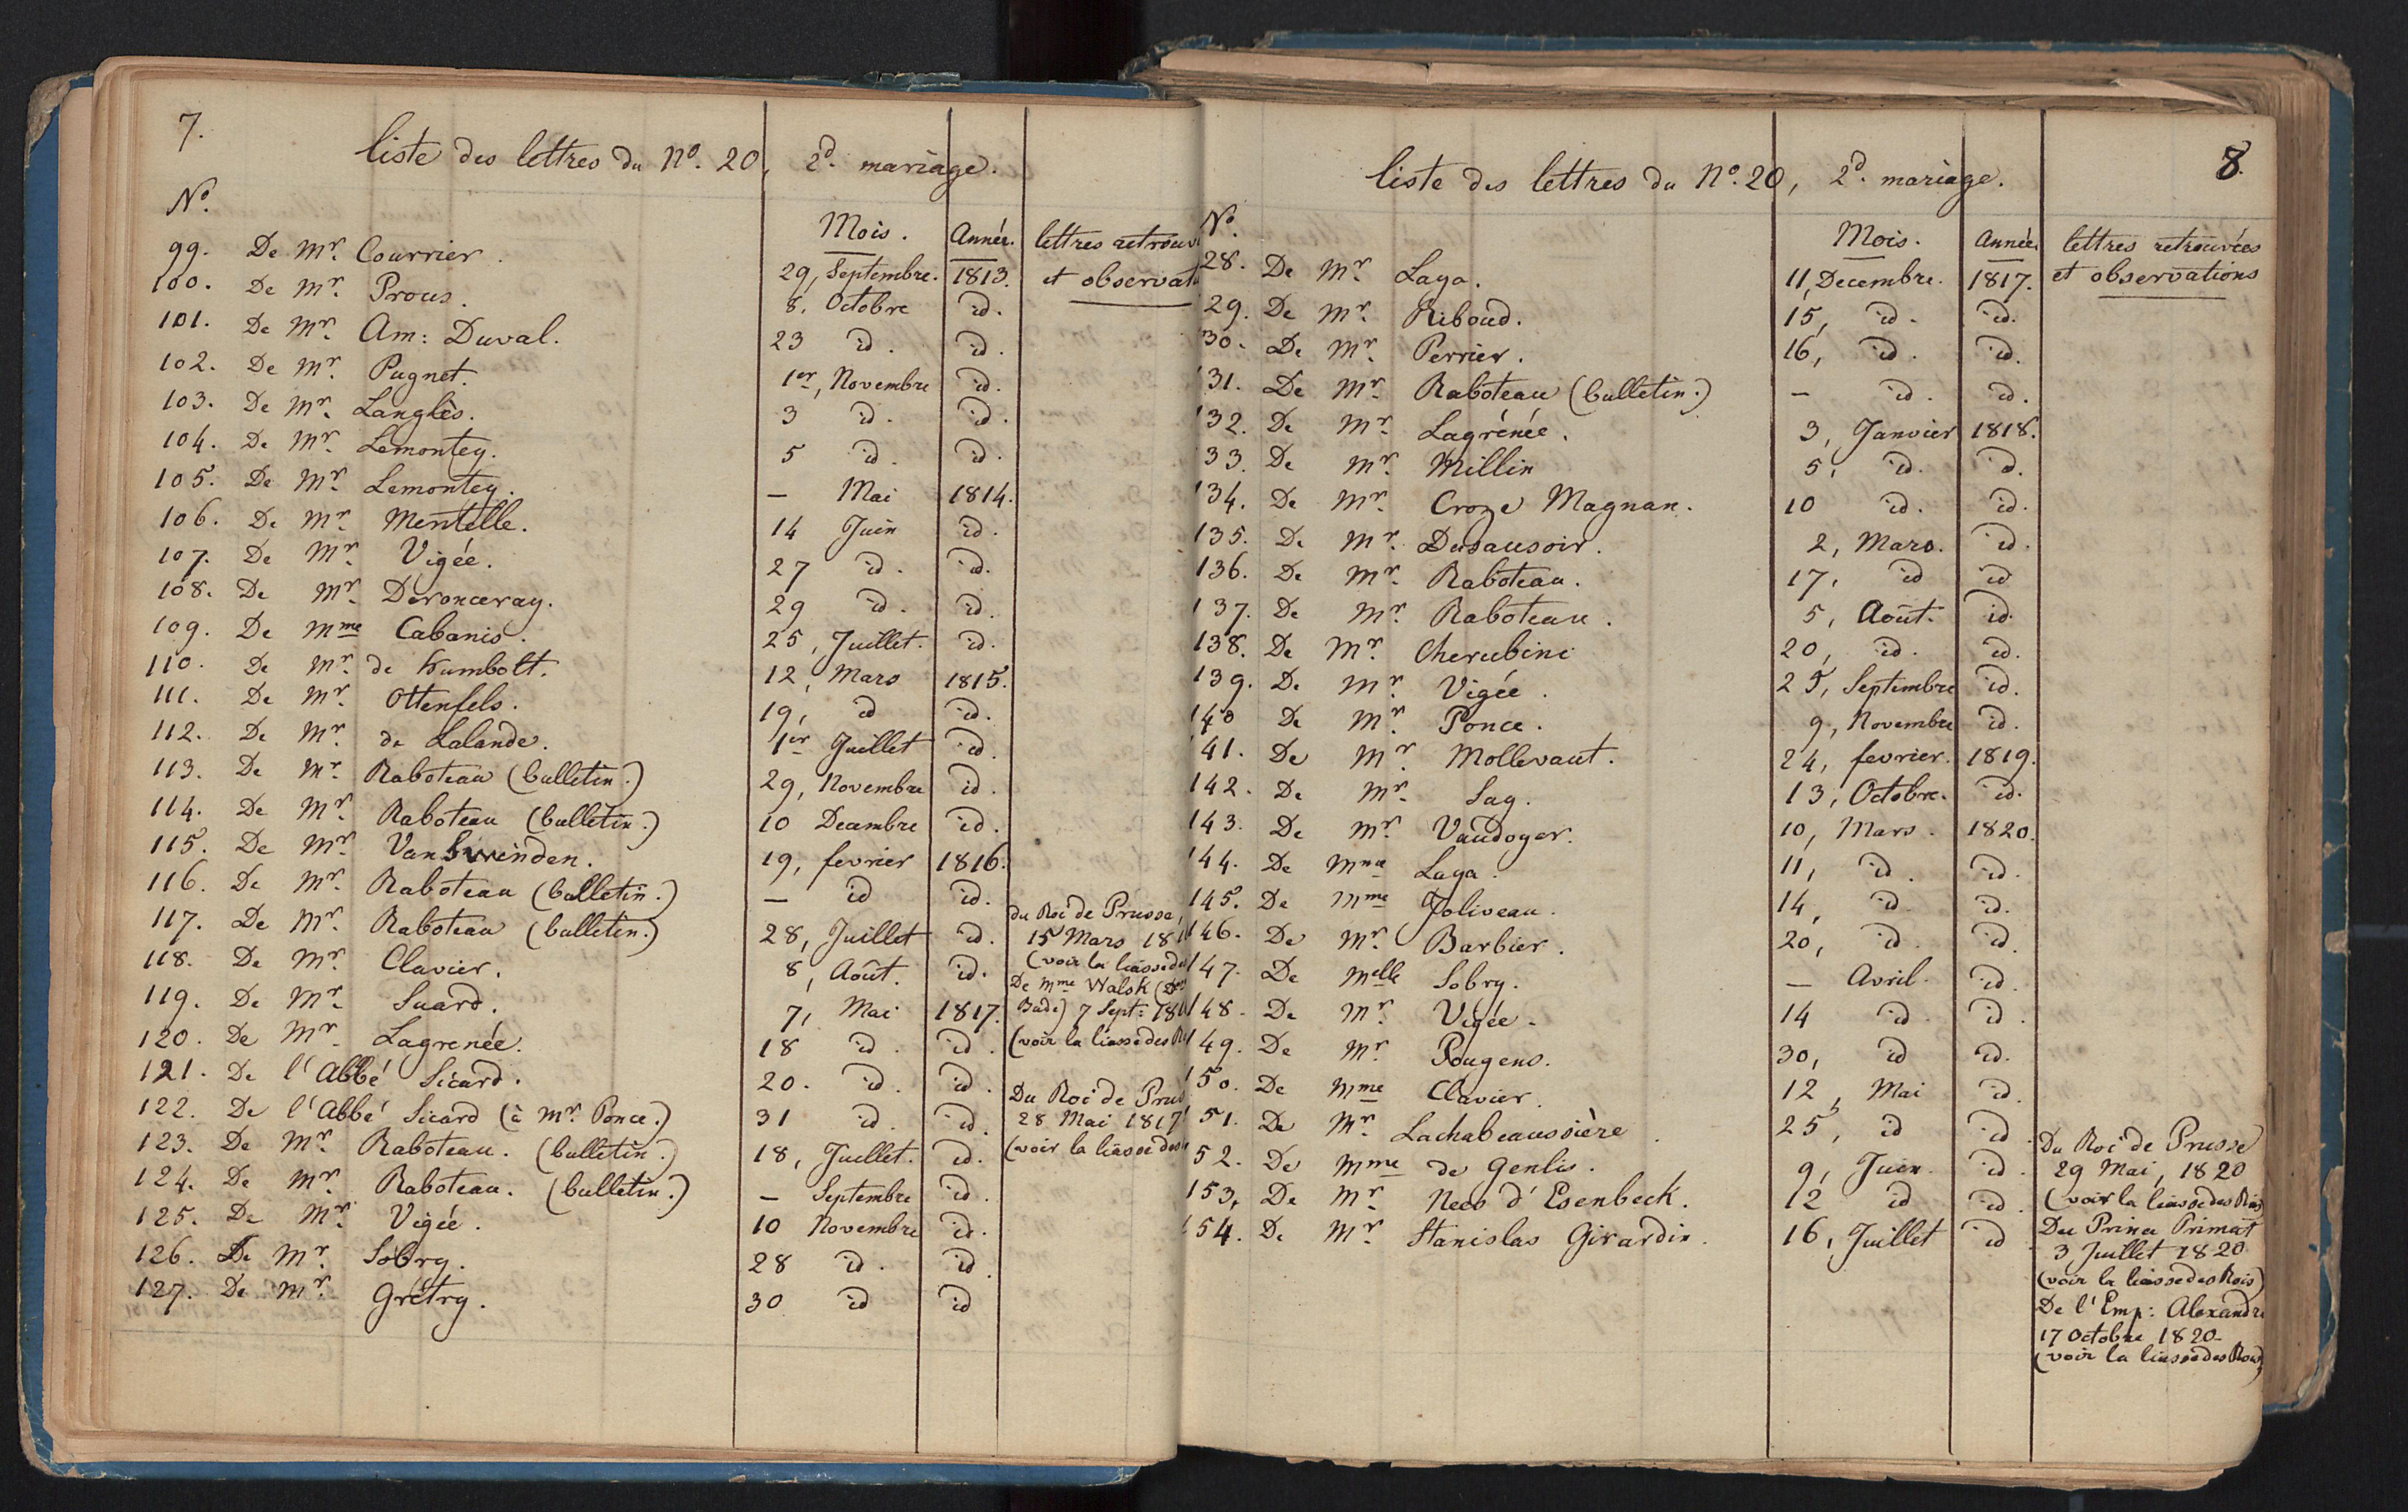 7.
liste des lettres du N°. 20, 2d. mariage.
N°. Mois. Année. lettres retrouv
et observat
99. De Mr. Courrier. 29, Septembre. 1813.
100. De Mr. Prous. 8. Octobre id.
101. De Mr. Am: Duval. 23 id. id.
102. De Mr. Pugnet. 1er, Novembre id.
103. De Mr. Langlès. 3 id. id.
104. De Mr. Lemontey. 5 id. id.
105. De Mr. Lemontey. — Mai 1814.
106. De Mr. Mentelle. 14 Juin id.
107. De Mr. Vigée. 27 id. id.
108. De Mr. Deronceray. 29 id. id.
109. De Mme Cabanis. 25, Juillet. id.
110. De Mr. de Humbolt. 12, Mars 1815.
111. De Mr. Ottenfels. 19, id id.
112. De Mr. de Lalande. 1er Juillet id.
113. De Mr. Raboteau (bulletin.) 29, Novembre id.
114. De Mr. Raboteau (bulletin.) 10 Decembre id.
115. De Mr. Van Swinden. 19, fevrier 1816.
116. De Mr. Raboteau (bulletin.) — id id.
117. De Mr. Raboteau (bulletin.) 28, Juillet id.
118. De Mr. Clavier. 8, Août. id.
119. De Mr. Suard. 7, Mai 1817.
120. De Mr. Lagrenée. 18 id. id.
121. De l'Abbé Sicard. 20. id. id.
122. De l'Abbé Sicard (à Mr. Ponce.) 31 id. id.
123. De Mr. Raboteau. (bulletin.) 18, Juillet. id.
124. De Mr. Raboteau. (bulletin.) — Septembre id.
125. De Mr. Vigée. 10 Novembre id.
126. De Mr. Sobry. 28 id. id.
127. De Mr. Grétry. 30 id id
du Roi de Prusse,
15 Mars 18
(voir la liasse de
De Mme Walsk
Bade) 7 Sept: 18
(voir la liasse des R
Du Roi de Prus
28 Mai 1817
(voir la liasse des
8.
liste des lettres du N°. 20, 2d. mariage.
N°. Mois. Année. lettres retrouvées
et observations
28. De Mr. Laya. 11, Decembre. 1817.
29. De Mr. Riboud. 15, id. id.
30. De Mr. Perrier. 16, id. id.
31. De Mr. Raboteau (bulletin.) — id. id.
132. De Mr. Lagrénée. 3, Janvier 1818.
33. De Mr. Millin 5, id. id.
134. De Mr. Croze Magnan. 10 id. id.
135. De Mr. Dusausoir. 2, Mars. id.
136. De Mr. Raboteau. 17, id id
137. De Mr. Raboteau. 5, Août. id.
138. De Mr. Cherubini 20, id. id.
139. De Mr. Vigée. 25, Septembre id.
140 De Mr. Ponce. 9, Novembre id.
141. De Mr. Mollevaut. 24, fevrier. 1819.
142. De Mr. Say. 13, Octobre. id.
143. De Mr. Vaudoyer. 10, Mars. 1820.
144. De Mme Laya. 11, id. id.
145. De Mme Joliveau. 14, id id.
146. De Mr. Barbier. 20, id. id.
147. De Melle Sobry. — Avril. id.
148. De Mr. Vigée. 14 id. id.
149. De Mr. Pougens. 30, id id.
150. De Mme Clavier. 12, Mai id.
51. De Mr. Lachabeaussière. 25, id id.
52. De Mme de Genlis. 9, Juin. id.
153, De Mr. Nees d'Esenbeck. 12 id id.
154. De Mr. Stanislas Girardin. 16, Juillet id
Du Roi de Prusse
29 Mai, 1820
(voir la liasse des Rois)
Du Prince Primat
3 Juillet 1820
(voir la liasse des Rois)
De l'Emp: Alexandre
17 Octobre 1820.
(voir la liasse des Rois)